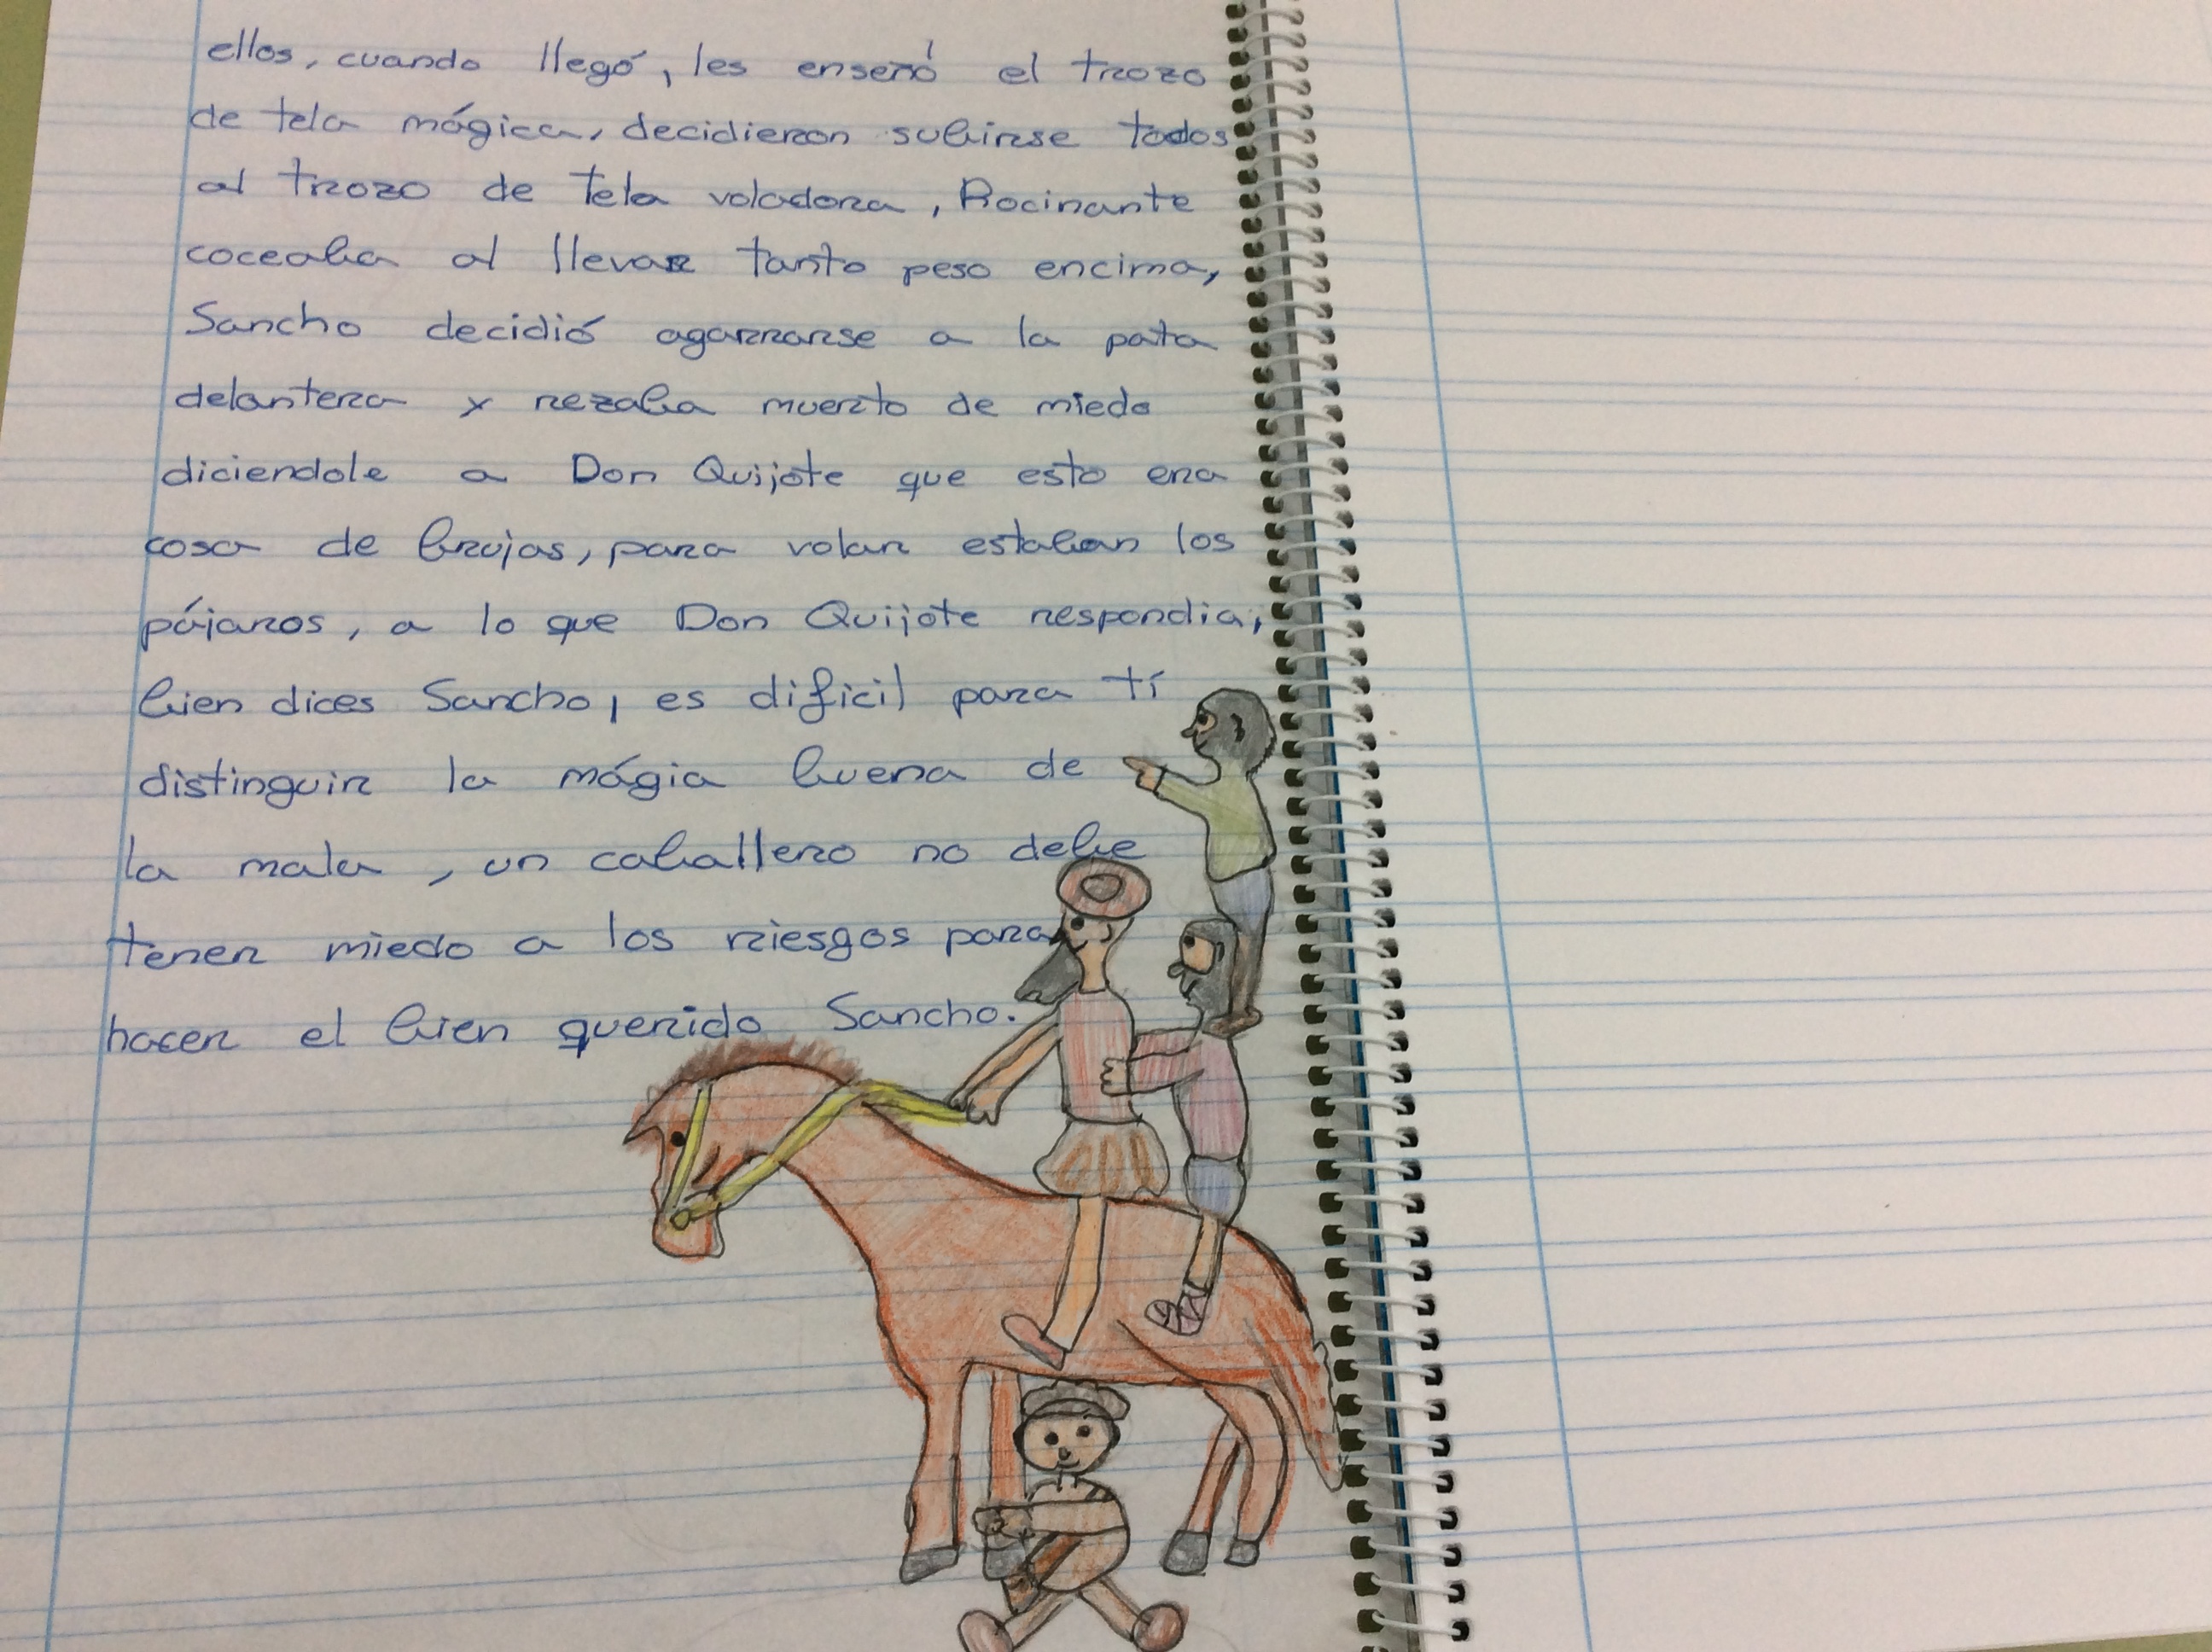 ellos, cuando llegó, les enseñó el trozo
de tela mágica, decidieron subirse todos
al trozo de tela voladora, Rocinante
coceaba al llevar tanto peso encima,
Sancho decidió agarrarse a la pata
delantera y rezaba muerto de miedo
diciendole a Don Quijote que esto era
cosa de brujas, para volar estaban los
pájaros, a lo que Don Quijote respondia;
bien dices Sancho, es dificil para tí
distinguir la mágia buena de
la mala, un caballero no debe
tener miedo a los riesgos para
hacer el bien querido Sancho.